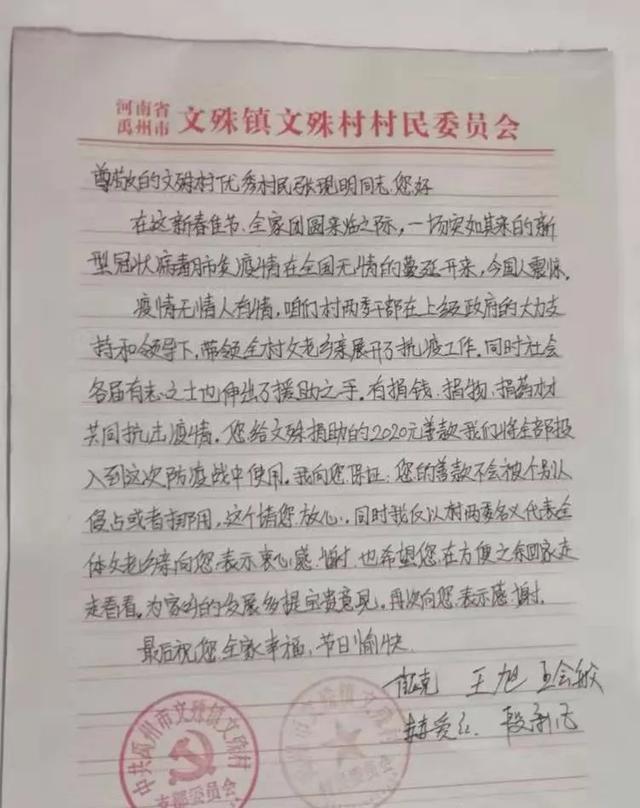 河南省
禹州市 文殊镇文殊村村民委员会
尊敬的文殊村优秀村民张现明同志.您好
在这新春佳节.全家团圆来临之际,一场突如其来的新
型冠状病毒肺炎疫情在全国无情的蔓延开来,令国人震惊.
疫情无情人有情.咱们村两委干部在上级政府的大力支
持和领导下,带领全村父老乡亲展开了抗疫工作.同时社会
各届有志之士也伸出了援助之手.有捐钱.捐物.捐药材
共同抗击疫情.您给文殊捐助的2020元善款我们将全部投
入到这次防疫战中使用.我向您保证:您的善款不会被个别人
侵占或者挪用,这个请您放心,同时我仅以村两委名义代表全
体父老乡亲向您表示衷心感谢.也希望您在方便之余回家走
走看看.为家乡的发展多提宝贵意见.再次向您表示感谢.
最后祝您全家幸福,节日愉快.
王旭
中共禹州市文殊镇文殊村
支部委员会
禹州市文殊镇文殊村
村民委员会